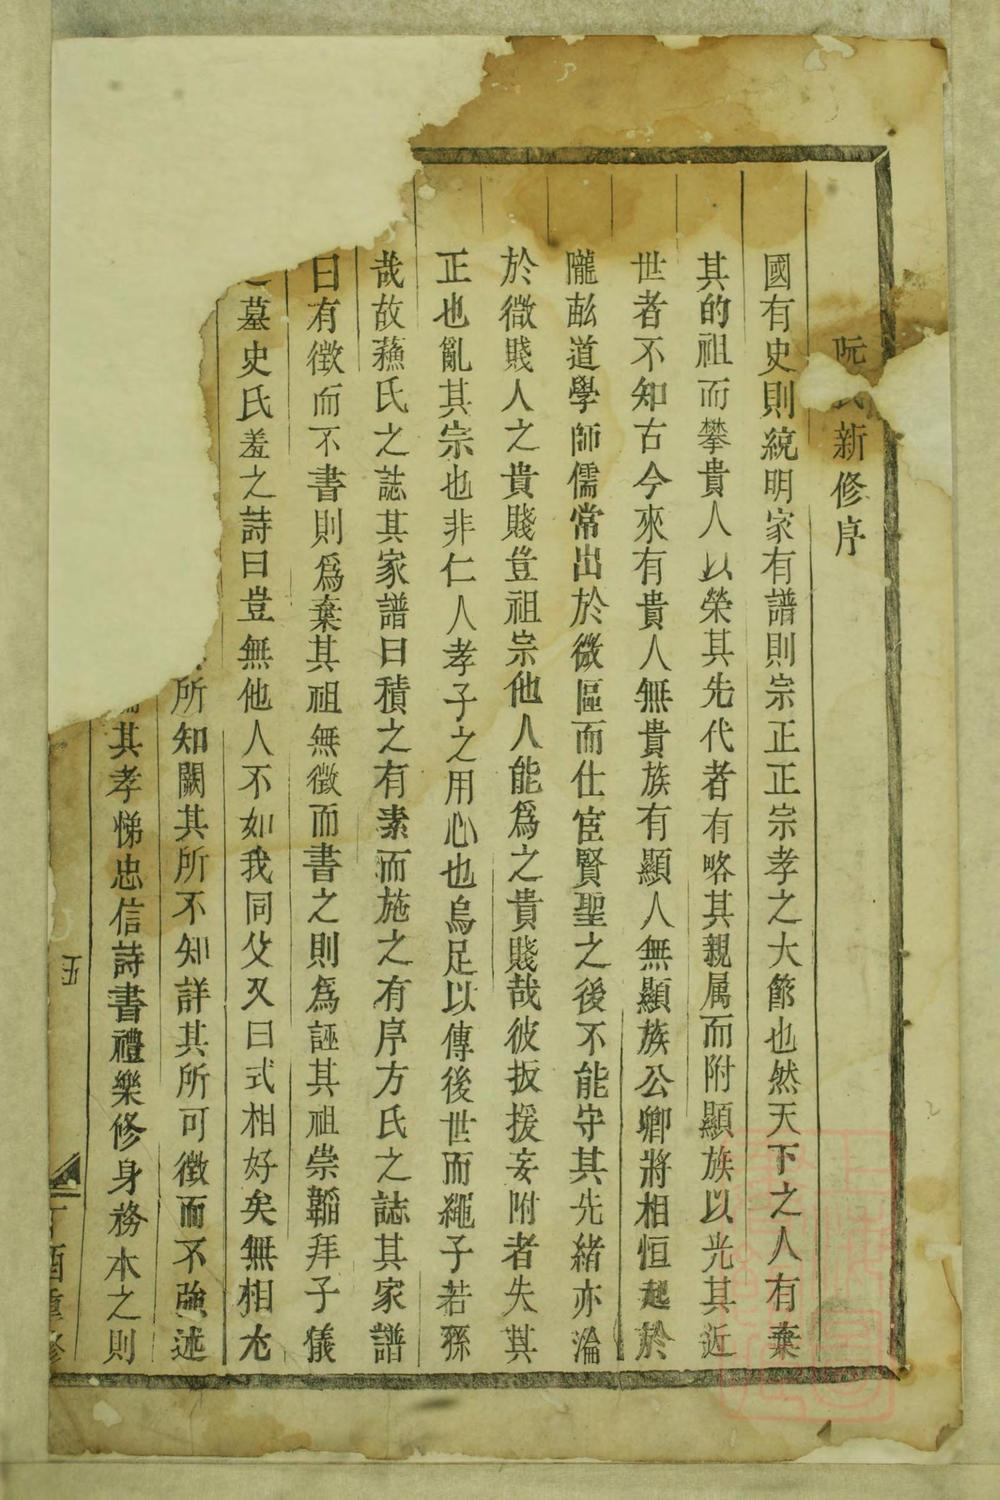 阮氏新修序
國有史則統明家有譜則宗正正宗孝之大節也然天下之人有棄
其的祖而攀貴人以榮其先代者有略其親属而附顯族以光其近
世者不知古今來有貴人無貴族有顯人無顯族公卿將相恒起於
隴畝道學師儒常出於微區而仕宦賢聖之後不能守其先緒亦淪
於微賤人之貴賤豈祖宗他人能爲之貴賤哉彼扳援妄附者失其
正也亂其宗也非仁人孝子之用心也烏足以傳後世而繩子若孫
哉故蘓氏之誌其家譜曰積之有素而施之有序方氏之誌其家譜
曰有徵而不書則爲棄其祖無徵而書之則爲誣其祖崇韜拜子儀
墓史氏羞之詩曰豈無他人不如我同父又曰式相好矣無相尤
所知闕其所不知詳其所可徵而不強述
其孝悌忠信詩書禮樂修身務本之則
五
酉重修